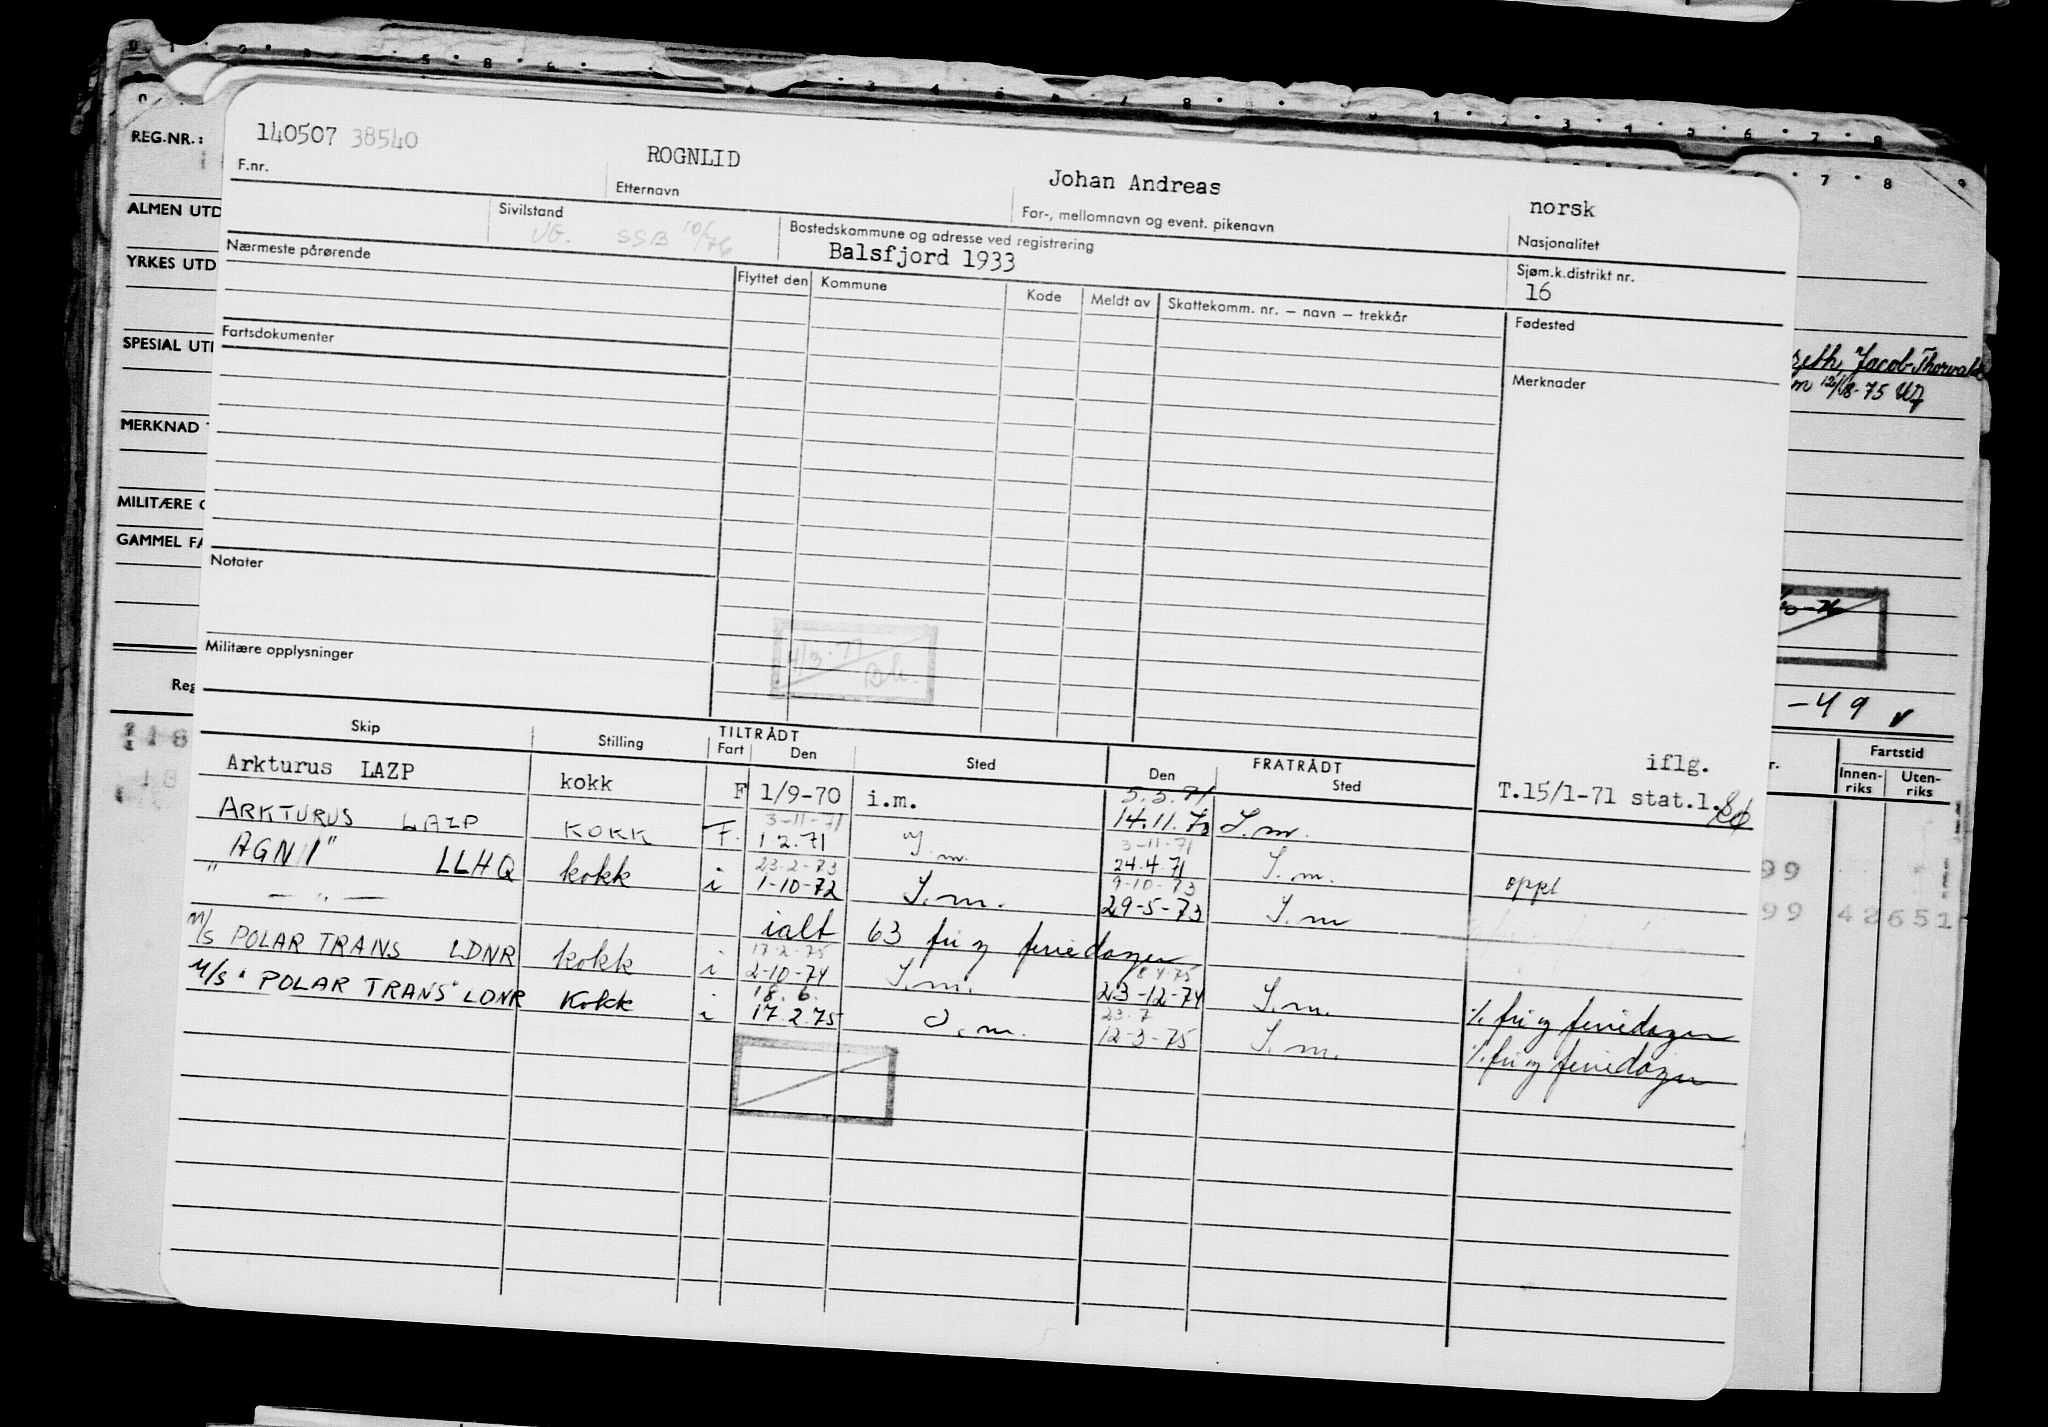 REG.NR.:
140507 38540
ROGNLID
Johan Andreas
norsk
F.nr.
Etternavn
For-, mellomnavn og event. pikenavn
Nasjonalitet
ALMEN UTD
Sivilstand
UG. SSB 10/76
Bostedskommune og adresse ved registrering
Balsfjord 1933
Sjøm.k.distrikt nr.
16
Nærmeste pårørende
YRKES UTD
Flyttet den
Kommune
Kode
Meldt av
Skattekomm. nr. – navn – trekkår
Fødested
Fartsdokumenter
SPESIAL UTI
Merknader
Jacob Thorvald
12/8-75
MERKNAD
MILITÆRE
GAMMEL FA
Notater
Militære opplysninger
4/3-77
Reg
-49
Skip
Stilling
TILTRÅDT
Fart
Den
Sted
FRATRÅDT
Den
Sted
Fartstid
Innen-
riks
Uten-
riks
Arkturus LAZP kokk F 1/9-70 i.m. 5.3.71 14.11.70 I.m. iflg. T.15/1-71 stat.l.
ARKTURUS LAZP KOKK F. 3-11-71 1.2.71 I.m. 3-11-71 24.4.71 I.m.
"AGN I" LLHQ kokk i 23-2-73 1-10-72 I.m. 9-10-73 29-5-73 I.m oppl
" — " — ialt 63 fri og feriedager
M/S POLAR TRANS LDNR kokk i 17-2-75 2-10-74 I.m. 18-4-75 23-12-74 I.m. % fri og feriedager
M/S "POLAR TRANS" LDNR Kokk i 18.6. 17.2.75 I.m. 23.7 12-3-75 I.m. % fri og feriedager
99
99 42651